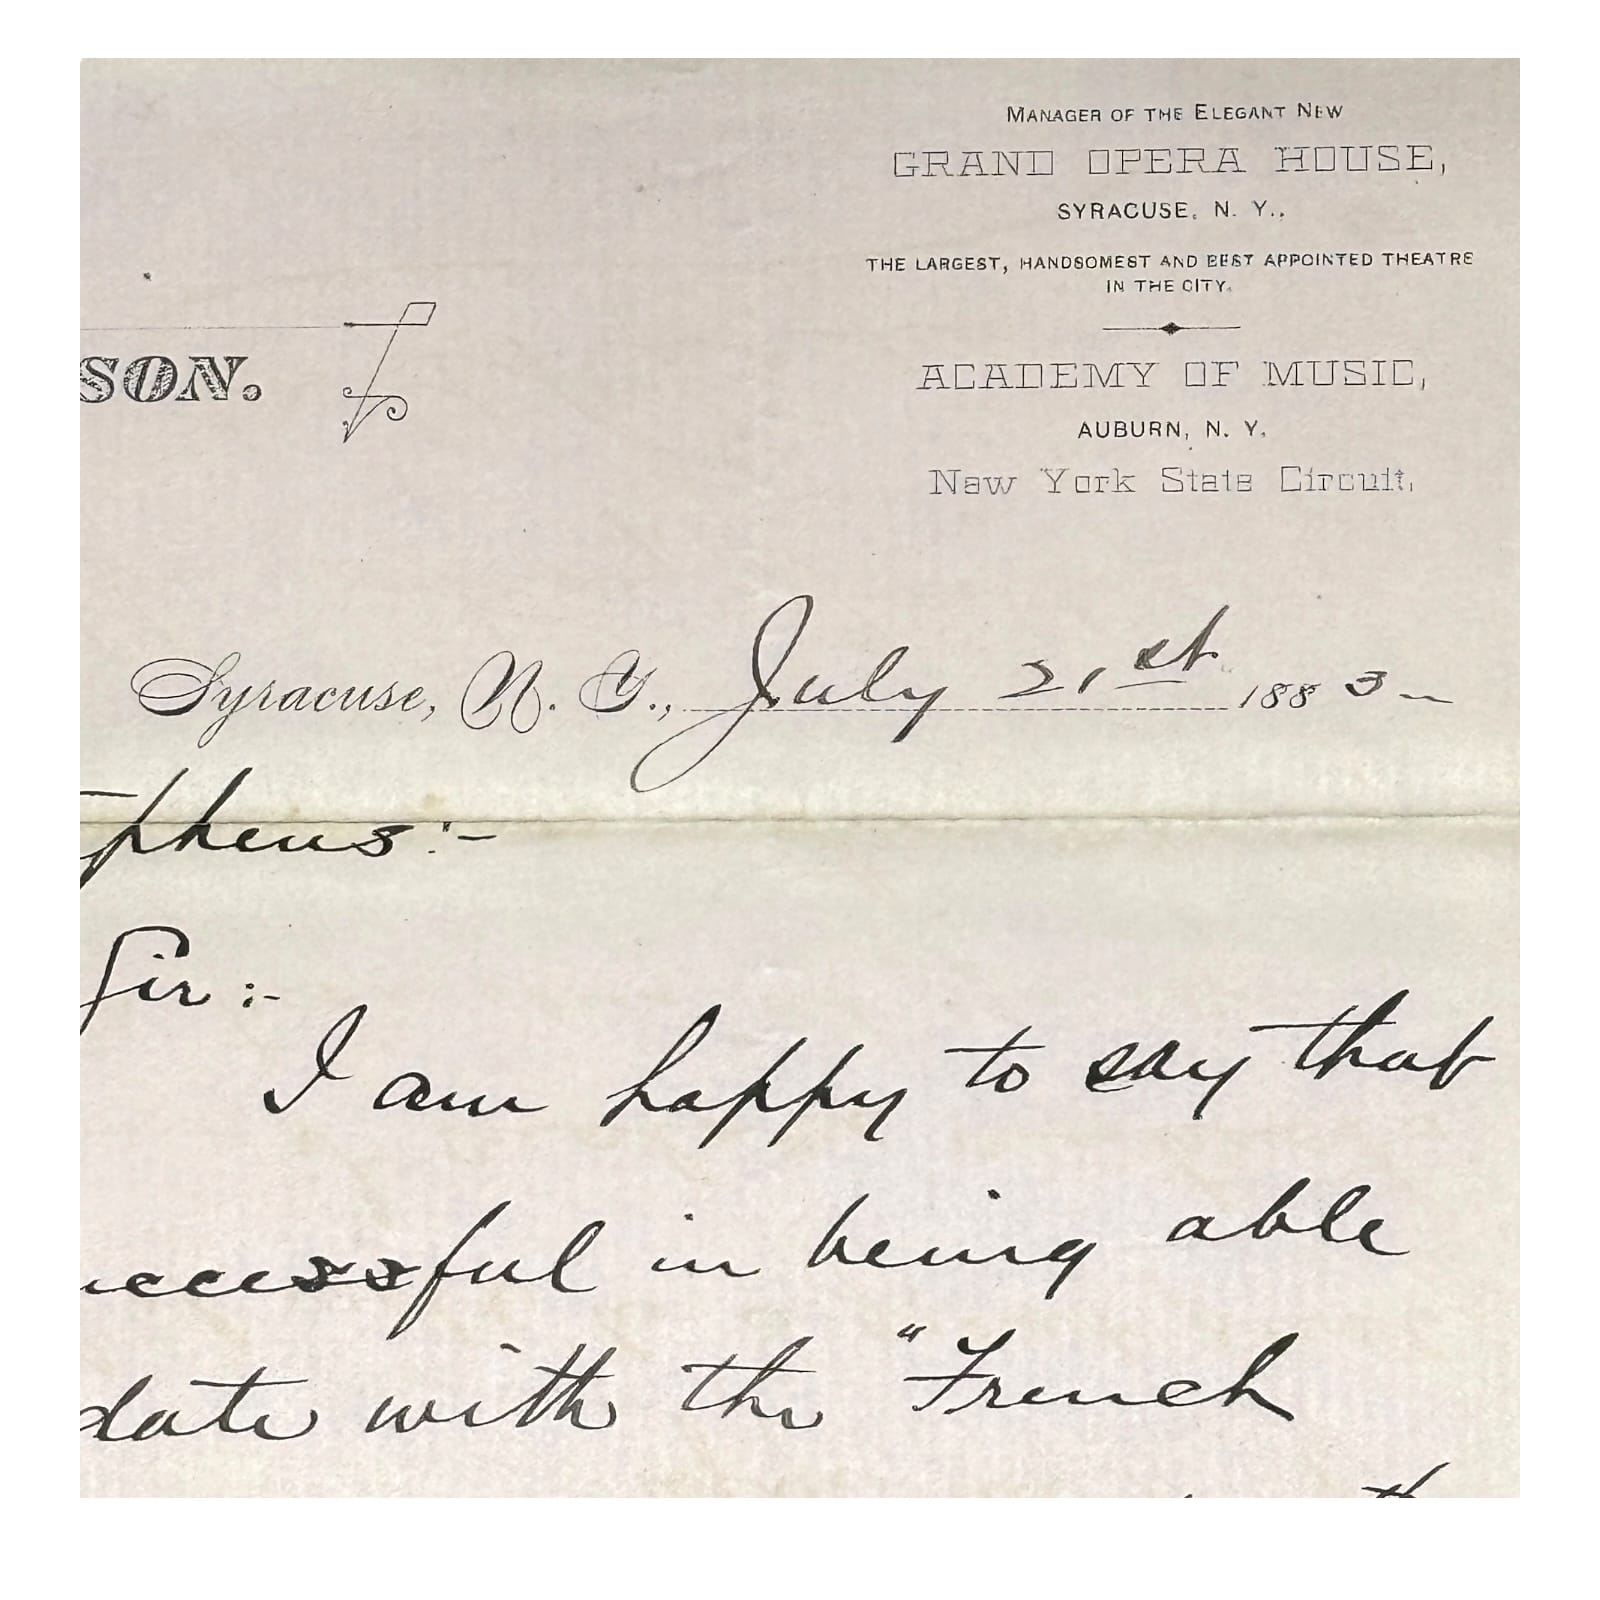 MANAGER OF THE ELEGANT NEW
GRAND OPERA HOUSE,
SYRACUSE, N. Y.,
THE LARGEST, HANDSOMEST AND BEST APPOINTED THEATRE
IN THE CITY.
SON.
ACADEMY OF MUSIC,
AUBURN, N. Y.
New York State Circuit.
Syracuse, N. Y., July 21st 1883-
phens:-
Sir:-
I am happy to say that
uccessful in being able
date with the "French